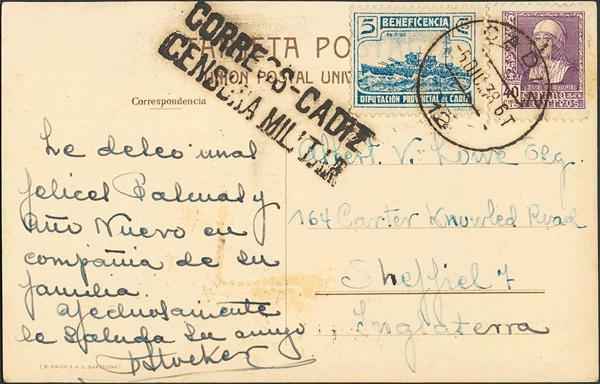 TARJETA POSTAL
UNION POSTAL UNIVERSAL
Correspondencia
CORREOS-CADIZ
CENSURA MILITAR
5 BENEFICENCIA
DIPUTACION PROVINCIAL DE CADIZ
40
CADIZ
Le deseo unas
felices Pascuas y
Año Nuevo en
compañia de su
familia.
Afectuosamente
le saluda su amigo
DStocker
Albert V. Lowe Esq.
164 Carter Knowled Road
Sheffield 7
Inglaterra